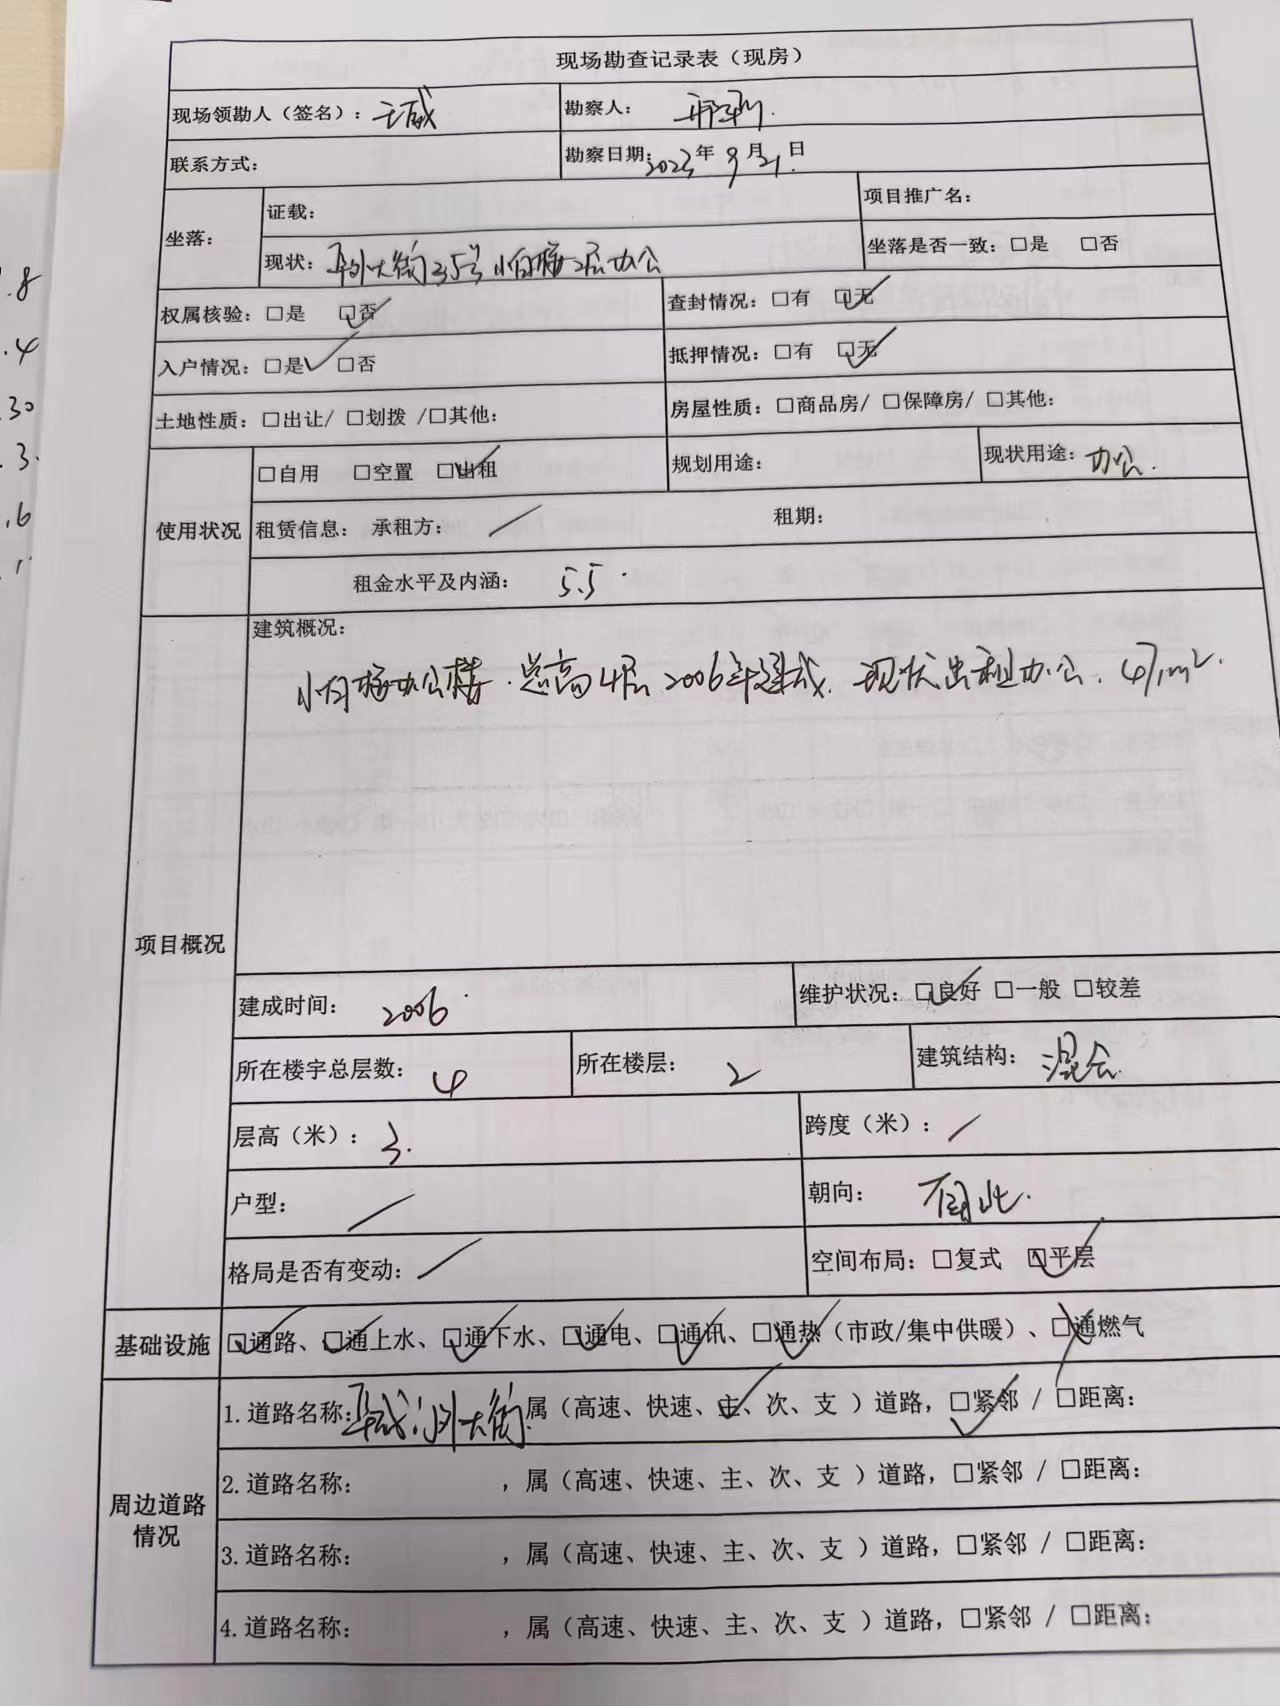 现场勘查记录表（现房）
现场领勘人（签名）：王威 勘察人：
联系方式： 勘察日期：2023年9月21日
坐落： 证载： 项目推广名：
现状：阜外大街35号小白楼2层办公 坐落是否一致：□是 □否
权属核验：□是 ☑否 查封情况：□有 ☑无
入户情况：☑是 □否 抵押情况：□有 ☑无
土地性质：□出让/ □划拨 /□其他： 房屋性质：□商品房/ □保障房/ □其他：
使用状况 □自用 □空置 ☑出租 规划用途： 现状用途：办公.
租赁信息： 承租方：／ 租期：
租金水平及内涵：5.5.
项目概况 建筑概况：
小白楼办公楼.总高4层2006年建成.现状出租办公.47m².
建成时间：2006. 维护状况：☑良好 □一般 □较差
所在楼宇总层数：4 所在楼层：2 建筑结构：混合.
层高（米）：3. 跨度（米）：／
户型：／ 朝向：
格局是否有变动：／ 空间布局：□复式 ☑平层
基础设施 ☑通路、☑通上水、☑通下水、☑通电、☑通讯、☑通热（市政/集中供暖）、□通燃气
周边道路情况 1.道路名称：阜成门外大街.属（高速、快速、主、次、支 ）道路，☑紧邻 / □距离：
2.道路名称： ，属（高速、快速、主、次、支 ）道路，□紧邻 / □距离：
3.道路名称： ，属（高速、快速、主、次、支 ）道路，□紧邻 / □距离：
4.道路名称： ，属（高速、快速、主、次、支 ）道路，□紧邻 / □距离：
.8
.4
.30
.3.
.6